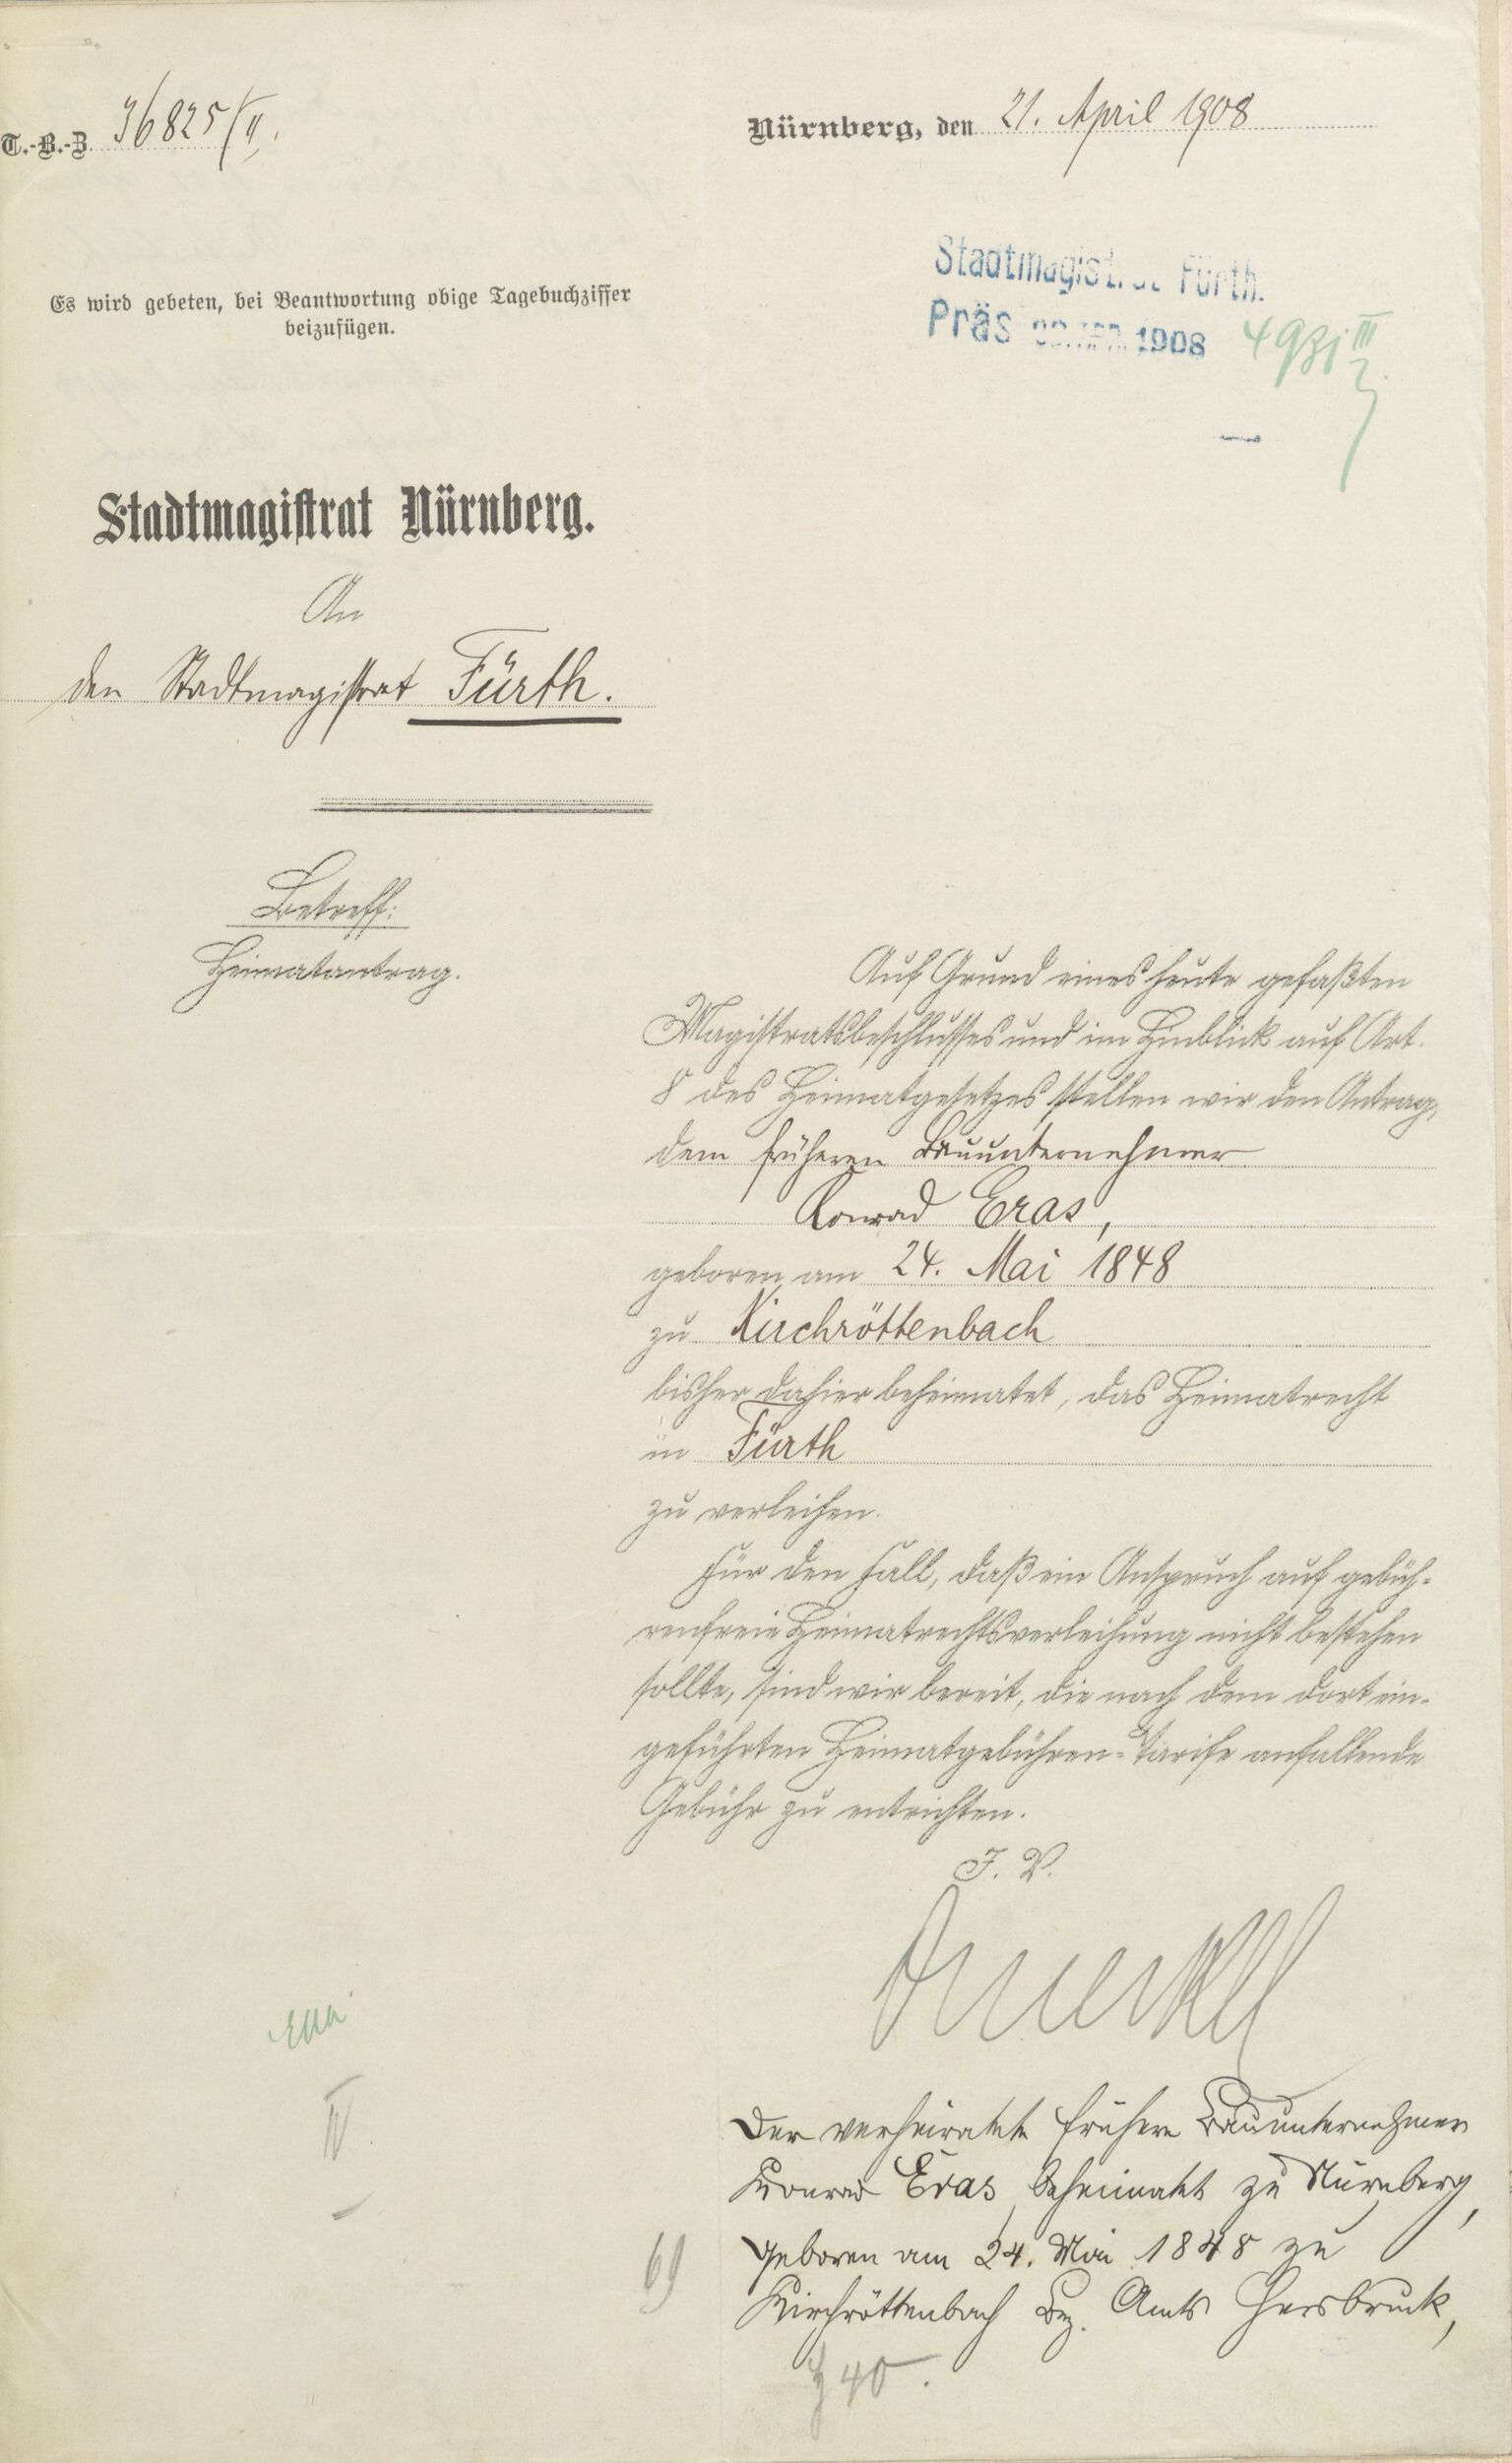 T.-B.-Z. 36825/II.
Nürnberg, den 21. April 1908
Stadtmagistrat Fürth.
Präs 1908
Es wird gebeten, bei Beantwortung obige Tagebuchziffer
beizufügen.
Stadtmagistrat Nürnberg.
An
den Stadtmagistrat Fürth.
Betreff:
Heimatantrag.
Auf Grund eines heute gefaßten
Magistratsbeschlusses und im Hinblick auf Art.
8 des Heimatgesetzes stellen wir den Antrag,
dem früheren Bauunternehmer
Konrad Eras,
geboren am 24. Mai 1848
zu Kirchröttenbach
bisher dahier beheimatet, das Heimatrecht
in Fürth
zu verleihen.
Für den Fall, daß ein Anspruch auf gebüh-
renfreie Heimatrechtsverleihung nicht bestehen
sollte, sind wir bereit, die nach dem dort ein-
geführten Heimatgebühren-Tarife anfallende
Gebühr zu entrichten.
J. V.
IV
Der verheiratete frühere Bauunternehmer
Konrad Eras, beheimatet zu Nürnberg,
geboren am 24. Mai 1848 zu
Kirchröttenbach Bez. Amts Hersbruck,
40.